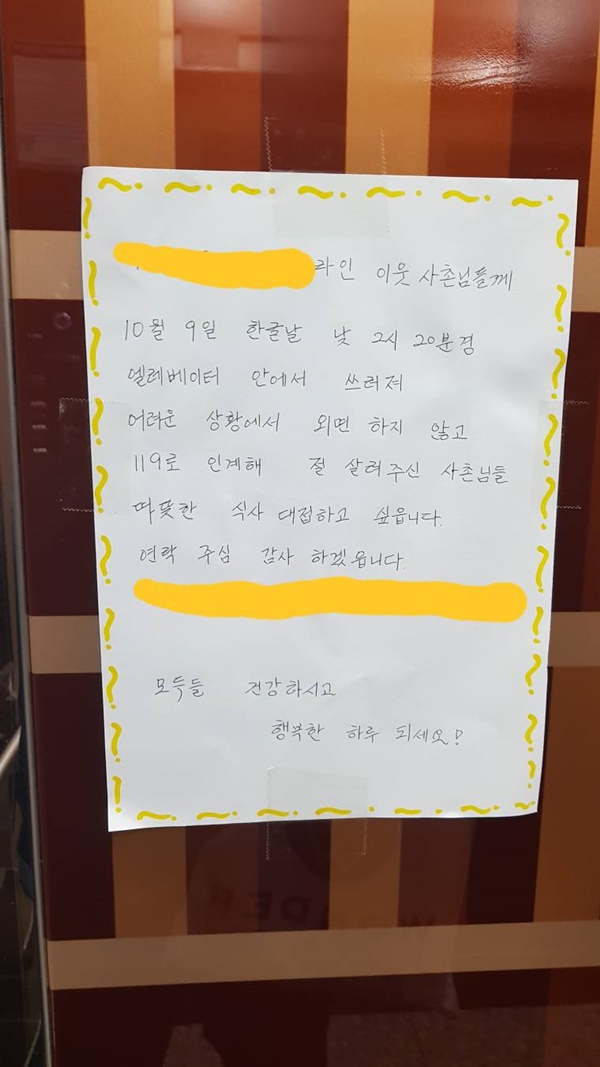 라인 이웃 사촌님들께
10월 9일 한글날 낮 2시 20분경
엘레베이터 안에서 쓰러져
어려운 상황에서 외면 하지 않고
119로 인계해 절 살려주신 사촌님들
따뜻한 식사 대접하고 싶읍니다.
연락 주심 감사 하겠읍니다.
모두들 건강하시고
행복한 하루 되세요!